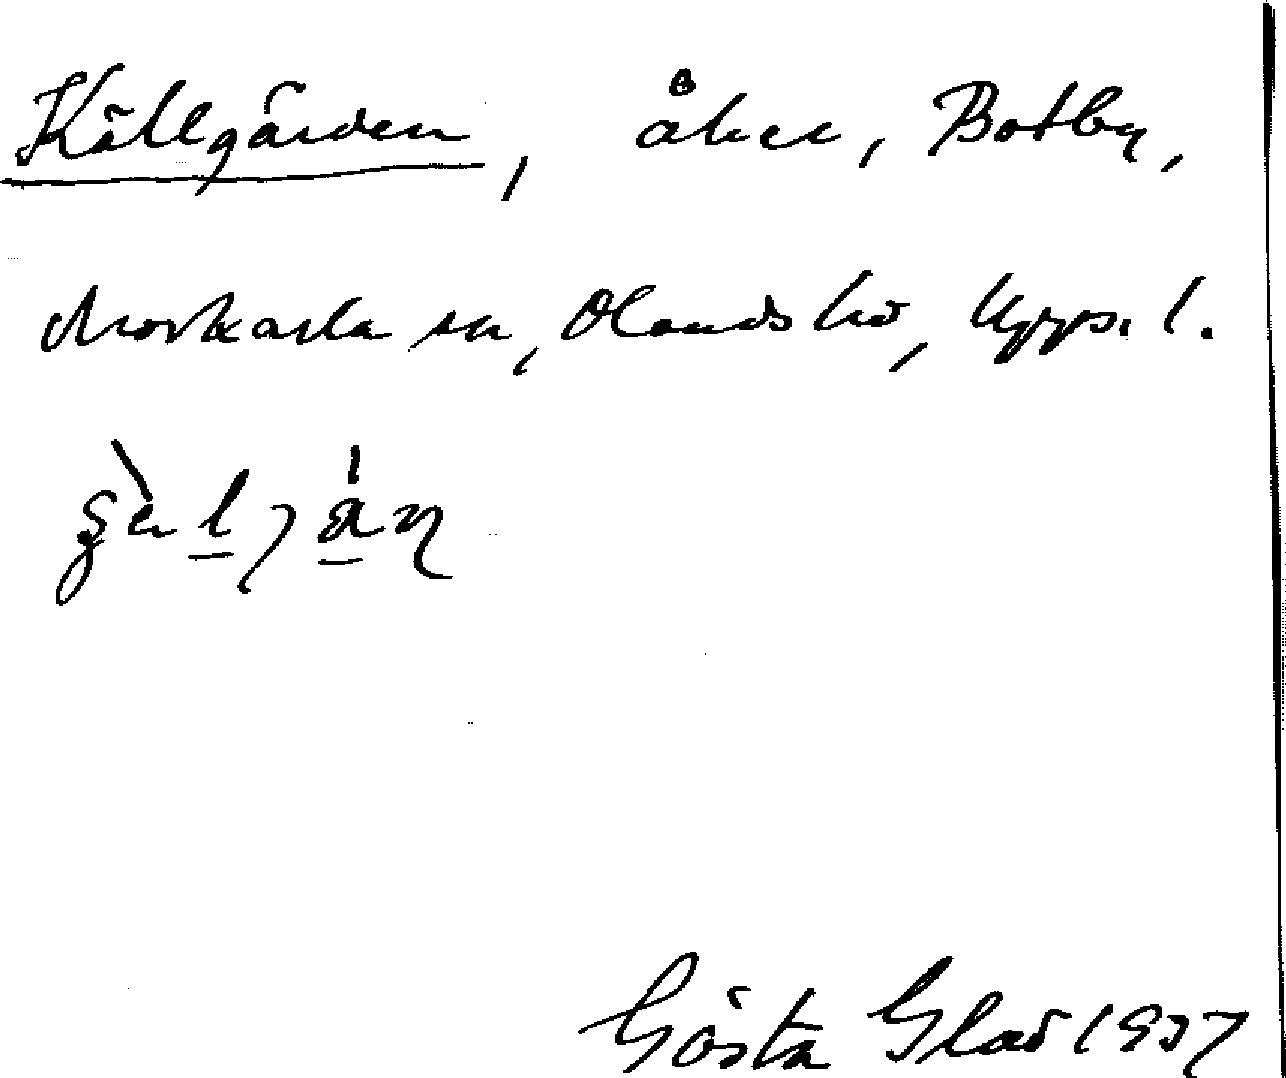 Källgärden, åker, Botby,
Morkarla sn, Olands hd, Upps. l.
Gösta Glad 1937